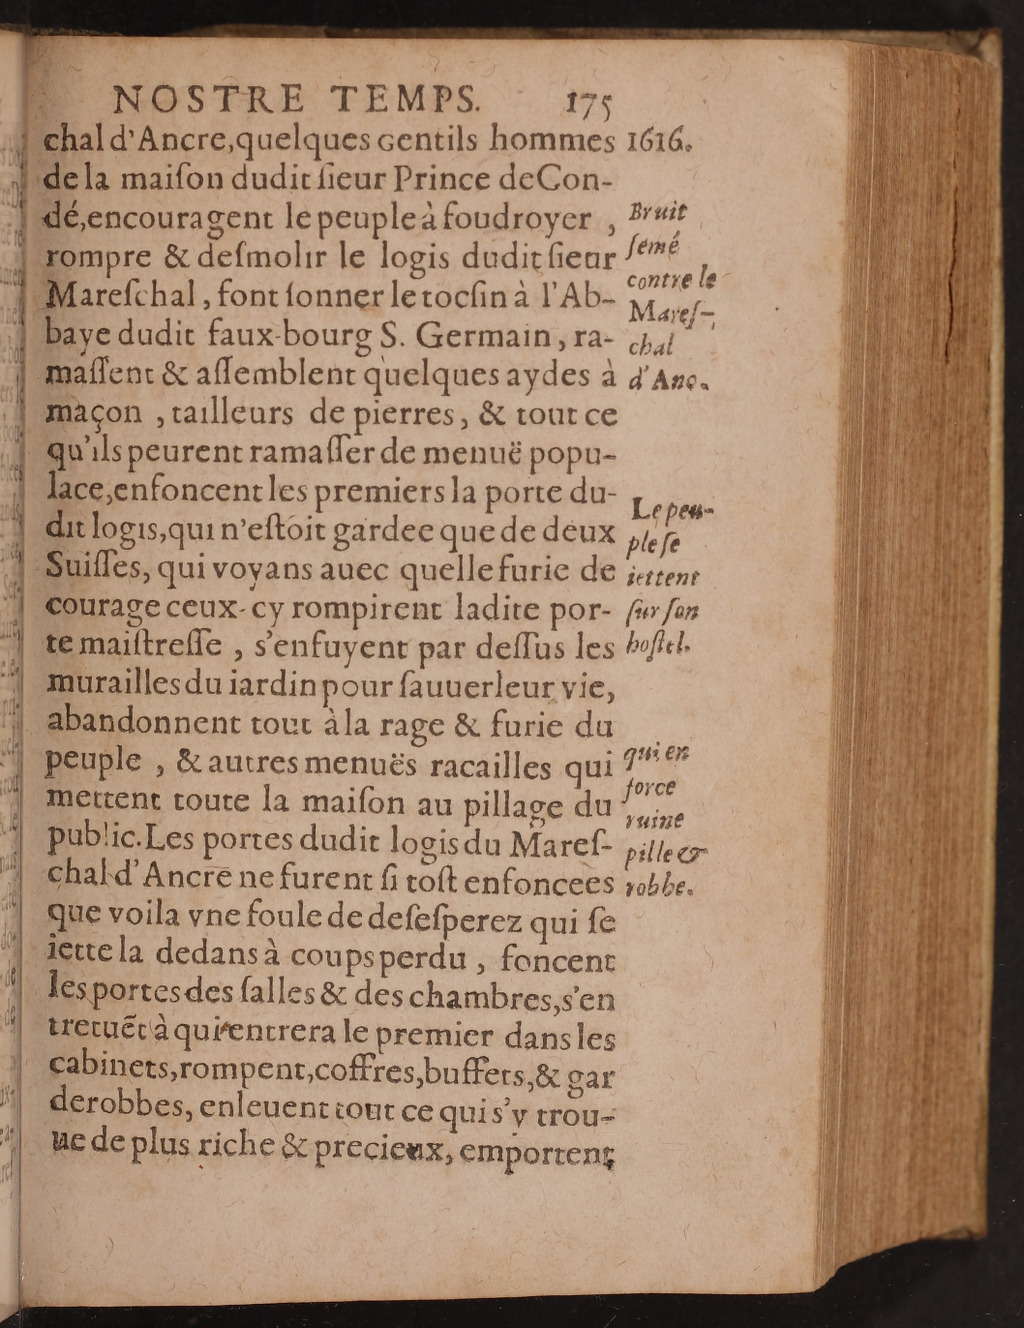 NOSTRE TEMPS. 175
chal d'Ancre, quelques gentils hommes 1616.
de la maiſon dudit ſieur Prince de Con-
dé, encouragent le peuple à foudroyer ,
rompre & deſmolir le logis dudit ſieur
Mareſchal, font ſonner le tocſin à l'Ab-
baye dudit faux-bourg S. Germain, ra-
maſſent & aſſemblent quelques aydes à
maçon , tailleurs de pierres, & tout ce
qu'ils peurent ramaſſer de menuë popu-
lace, enfoncent les premiers la porte du-
dit logis, qui n'eſtoit gardee que de deux
Suiſſes, qui voyans auec quelle furie de
courage ceux-cy rompirent ladite por-
te maiſtreſſe , s'enfuyent par deſſus les
murailles du iardin pour ſauuer leur vie,
abandonnent tout à la rage & furie du
peuple , & autres menuës racailles qui
mettent toute la maiſon au pillage du
public. Les portes dudit logis du Mareſ-
chal d'Ancre ne furent ſi toſt enfoncees
que voila vne foule de deſeſperez qui ſe
iette la dedans à coups perdu , foncent
les portes des ſalles & des chambres, s'en
tretuët à qui entrera le premier dans les
cabinets, rompent, coffres, buffets, & gar
derobbes, enleuent tout ce qui s'y trou-
ue de plus riche & precieux, emportent
Bruit
ſemé
contre le
Mareſ-
chal
d'Anc.
Le peu-
ple ſe
iettent
ſur ſon
hoſtel.
qui en
force
ruine
pille &
robbe.